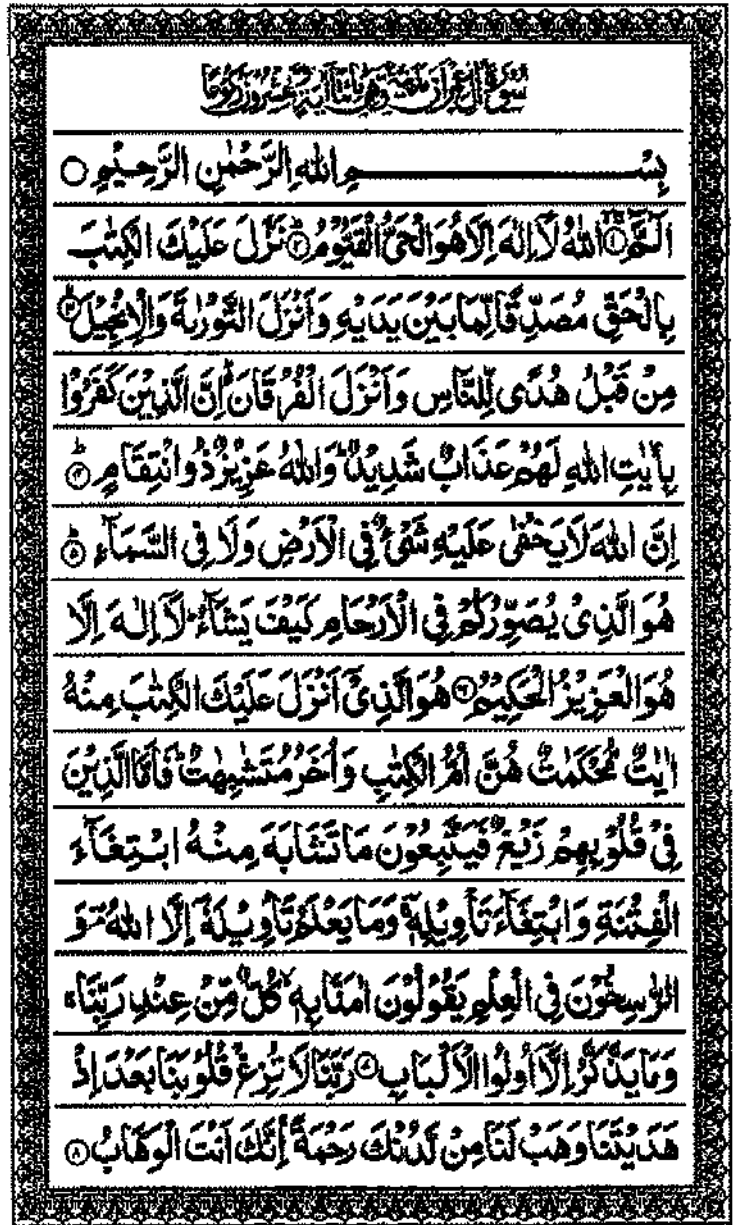 سورة ال عمران مدنية وهي مائتا اية وعشرون ركوعا
بِسْمِ اللهِ الرَّحْمٰنِ الرَّحِيْمِ ○
الٓمّٓ ۙ﴿۱﴾ اللهُ لَاۤ اِلٰهَ اِلَّا هُوَ الْحَىُّ الْقَيُّوْمُ ؕ﴿۲﴾ نَزَّلَ عَلَيْكَ الْكِتٰبَ
بِالْحَقِّ مُصَدِّقًا لِّمَا بَيْنَ يَدَيْهِ وَاَنْزَلَ التَّوْرٰىةَ وَالْاِنْجِيْلَ ۙ﴿۳﴾
مِنْ قَبْلُ هُدًى لِّلنَّاسِ وَاَنْزَلَ الْفُرْقَانَ ؕ اِنَّ الَّذِيْنَ كَفَرُوْا
بِاٰيٰتِ اللهِ لَهُمْ عَذَابٌ شَدِيْدٌ ؕ وَاللهُ عَزِيْزٌ ذُو انْتِقَامٍ ؕ﴿۴﴾
اِنَّ اللهَ لَا يَخْفٰى عَلَيْهِ شَىْءٌ فِى الْاَرْضِ وَلَا فِى السَّمَآءِ ؕ﴿۵﴾
هُوَ الَّذِىْ يُصَوِّرُكُمْ فِى الْاَرْحَامِ كَيْفَ يَشَآءُ ؕ لَاۤ اِلٰهَ اِلَّا
هُوَ الْعَزِيْزُ الْحَكِيْمُ ﴿۶﴾ هُوَ الَّذِىْۤ اَنْزَلَ عَلَيْكَ الْكِتٰبَ مِنْهُ
اٰيٰتٌ مُّحْكَمٰتٌ هُنَّ اُمُّ الْكِتٰبِ وَاُخَرُ مُتَشٰبِهٰتٌ ؕ فَاَمَّا الَّذِيْنَ
فِىْ قُلُوْبِهِمْ زَيْغٌ فَيَتَّبِعُوْنَ مَا تَشَابَهَ مِنْهُ ابْتِغَآءَ
الْفِتْنَةِ وَابْتِغَآءَ تَاْوِيْلِهٖ ۚ وَمَا يَعْلَمُ تَاْوِيْلَهٗۤ اِلَّا اللهُ ؔۘ وَ
الرّٰسِخُوْنَ فِى الْعِلْمِ يَقُوْلُوْنَ اٰمَنَّا بِهٖ ۙ كُلٌّ مِّنْ عِنْدِ رَبِّنَا ۚ
وَمَا يَذَّكَّرُ اِلَّاۤ اُولُوا الْاَلْبَابِ ﴿۷﴾ رَبَّنَا لَا تُزِغْ قُلُوْبَنَا بَعْدَ اِذْ
هَدَيْتَنَا وَهَبْ لَنَا مِنْ لَّدُنْكَ رَحْمَةً ۚ اِنَّكَ اَنْتَ الْوَهَّابُ ﴿۸﴾